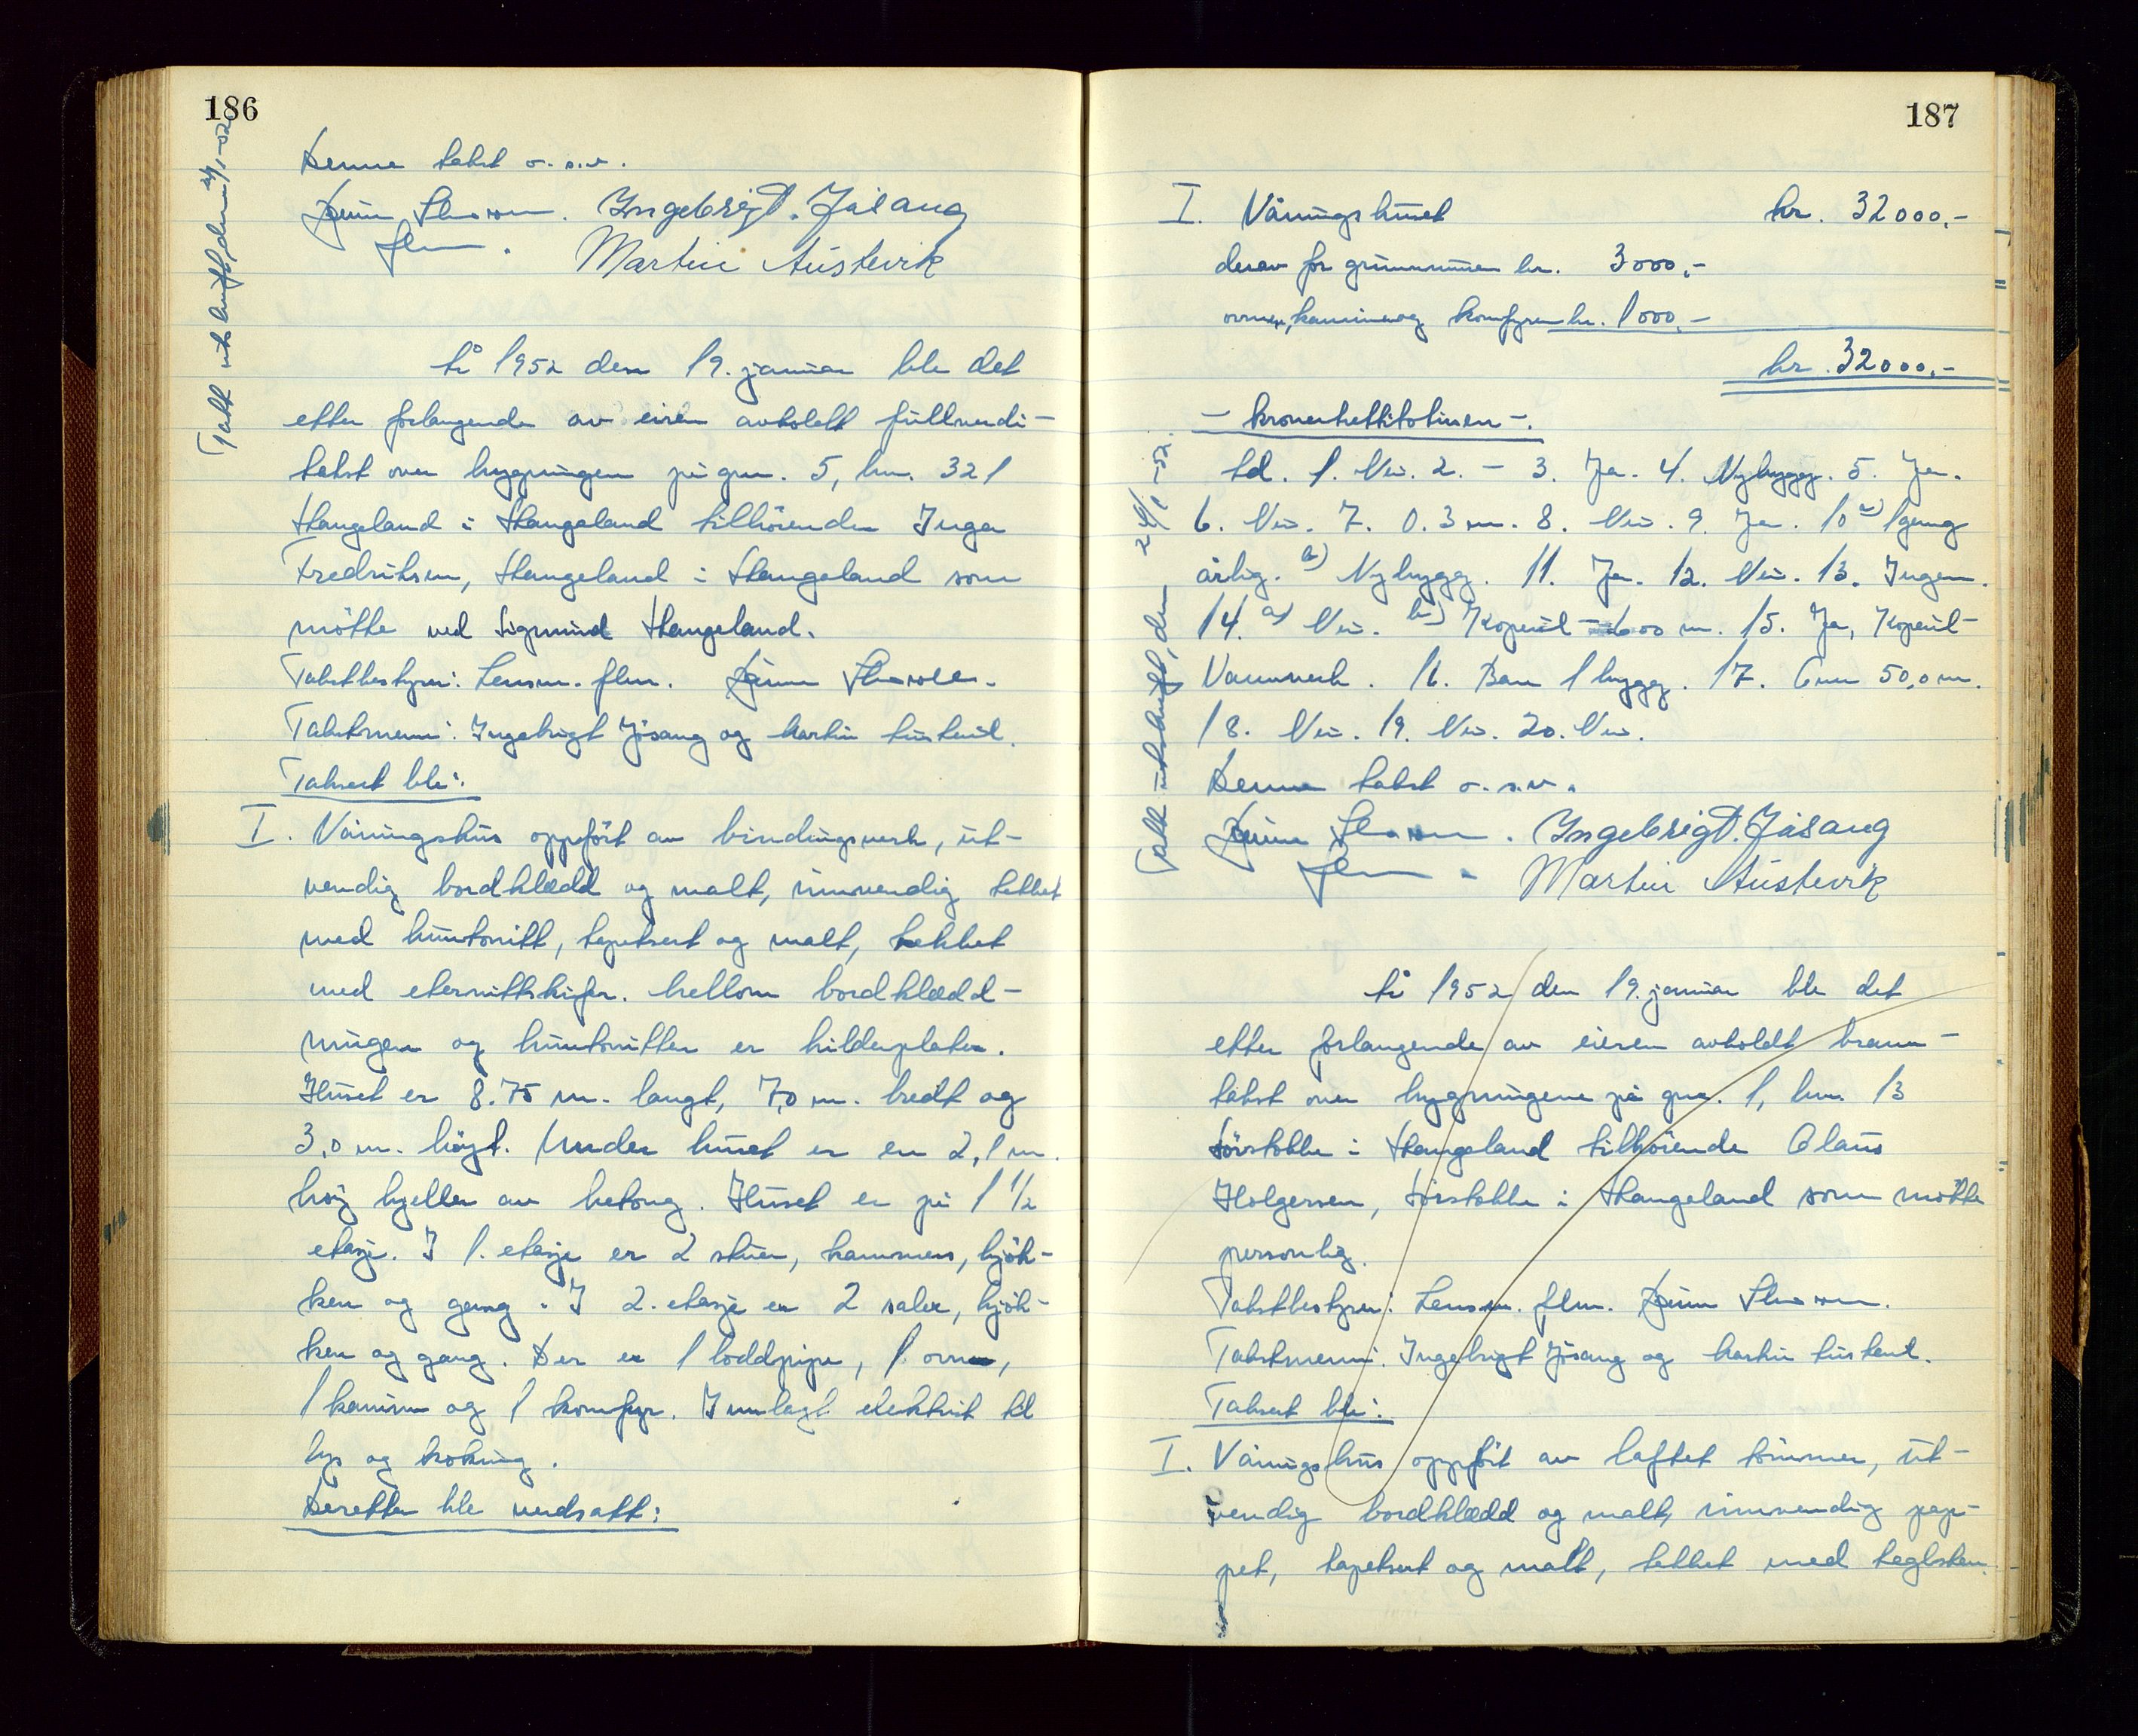 186
Denne takst o.s.v.
Ingebrigt. Jåsang
flm. Martin Austevik
Takst utskrift, den 24/1 -52.
År 1952 den 19. januar ble det
etter forlangende av eiren avholdt fullverdi-
takst over bygningen på gnr. 5, bnr. 321
Stangeland i Stangeland tilhörende Inga
Fredriksen, Stangeland i Stangeland som
mötte ved Sigmund Stangeland.
Takstbestyrer: Lensm. flm.
Takstmenn: Ingebrigt Jåsang og Martin Austevik.
Taksert ble:
I. Våningshus oppfört av bindingsverk, ut-
vendig bordklædd og malt, innvendig tekket
med huntonitt, tapetsert og malt, tekket
med eternittskifer. Mellom bordklædd-
ningen og huntonitten er silderplater.
Huset er 8.75 m. langt, 7,0 m. bredt og
3,0 m. högt. Under huset er en 2,1 m.
höy kjeller av betong. Huset er på 1 1/2
etasje. I 1. etasje er 2 stuer, kammers, kjök-
ken og gang. I 2. etasje er 2 saler, kjök-
ken og gang. Der er 1 loddpipe, 1 ovn,
1 kamin og 1 komfyr. Innlagt elektrisk til
lys og koking.
Deretter ble verdsatt:
187
I. Våningshuset kr. 32000.-
derav for grunnmuren kr. 3000,-
ovnen, kaminen og komfyren kr. 1000.-
kr. 32000.-
- kronertrettitotusen -.
td. 1. Nei. 2. - 3. Ja. 4. Nybygg. 5. Ja.
6. Nei. 7. 0.3 m. 8. Nei. 9. Ja. 10 a) 1 gang
årlig. b) Nybygg. 11. Ja. 12. Nei. 13. Ingen.
14. a) Nei. b) Kopervik - 600 m. 15. Ja, Kopervik
Vannverk. 16. Bare 1 bygg. 17. Enn 50,0 m.
18. Nei. 19. Nei. 20. Nei.
Denne takst o.s.v.
Ingebrigt. Jåsang
flm. Martin Austevik
Takst utskrift, den 24/1 -52.
År 1952 den 19. januar ble det
etter forlangende av eieren avholdt brann-
takst over bygningene på gnr. 1, bnr. 13
Sörstokke i Stangeland tilhörende Claus
Holgersen, Sörstokke i Stangeland som mötte
personlig.
Takstbestyrer: Lensm. flm.
Takstmenn: Ingebrigt Jåsang og Martin Austevik.
Taksert ble:
I. Våningshus oppfört av laftet tömmer, ut-
vendig bordklædd og malt, innvendig pap-
pet, tapetsert og malt, tekket med teglsten.